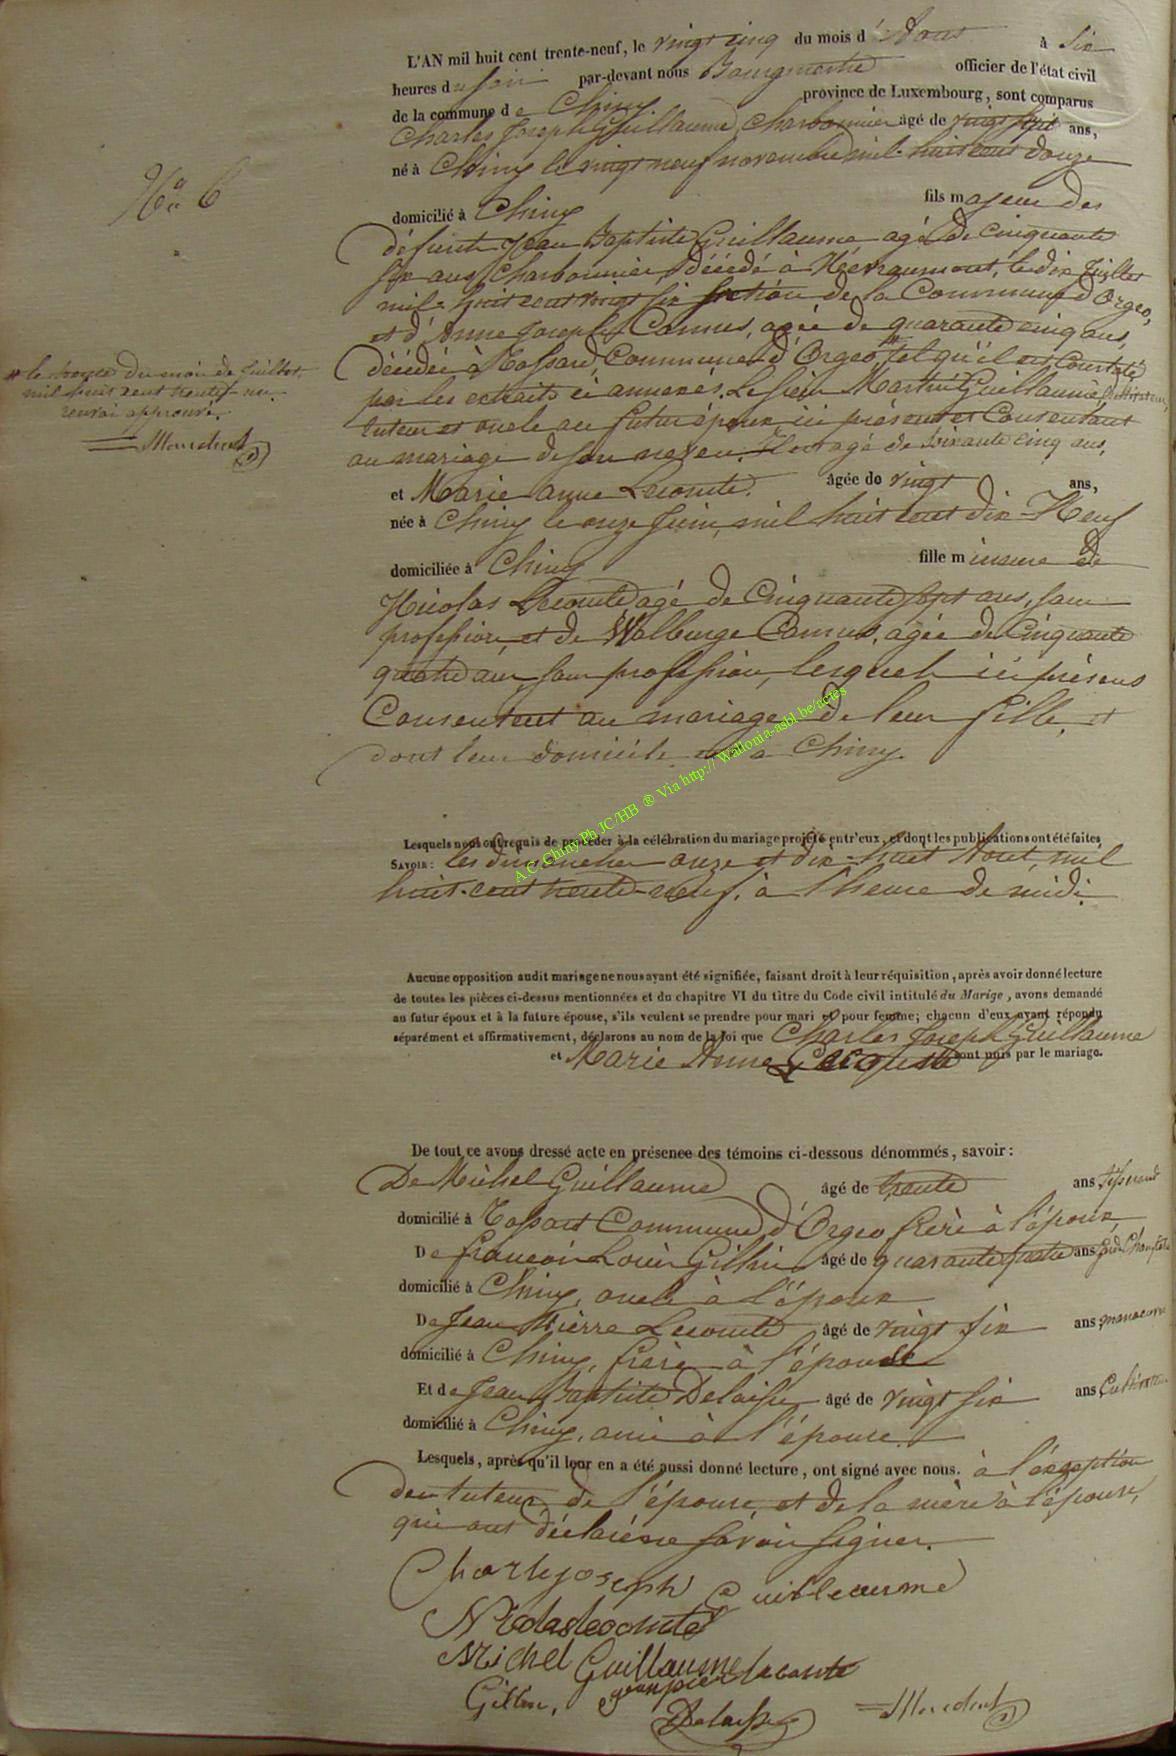 L'AN mil huit cent trente-neuf, le vingt cinq du mois d'Aout à six
heures du soir par-devant nous Bourgmestre officier de l'état civil
de la commune de Chiny province de Luxembourg, sont comparus
Charles Joseph Guillaume, Charbonnier agé de vingt six ans,
né à Chiny le vingt neuf novembre mil-huit cent douze
N° 6
domicilié à Chiny fils majeur des
défunts Jean Baptiste Guillaume, agé de Cinquante
six ans, Charbonnier, décédé à Névraumont, le dix Juillet
mil-huit cent vingt six section de la Commune d'Orgeo,
et d'Anne Joseph Camus, agée de quarante cinq ans,
décédée à Tossard, Commune d'Orgeo, # tel qu'il est Constaté
# le du mois de Juillet
mil huit cent trente-un
renvoi approuvé.
par les extraits ci annexés. Le sieur Martin Guillaume
tuteur et oncle au futur époux, ici présent et Consentant
au mariage de son neveu. Il est agé de soixante cinq ans,
et Marie anne Lecomte. âgée de vingt ans,
née à Chiny le onze Juin, mil huit cent dix-Neuf
domiciliée à Chiny fille mineure de
Nicolas Lecomte agé de Cinquante sept ans, sans
profession, et de Walburge Camus, agée de Cinquante
quatre ans, sans profession, lesquels ici présens
Consentent au mariage de leur fille, et
dont leur domicile est a Chiny.
A.C. Chiny Ph JC/HB ® Via http:// Wallonia-asbl.be/actes
Lesquels nous ont requis de procéder à la célébration du mariage projeté entr'eux, et dont les publications ont été faites,
SAVOIR: les dimanches onze et dix-huit Aout, mil
huit-cent trente-neuf, à l'heure de midi.
Aucune opposition audit mariage ne nous ayant été signifiée, faisant droit à leur réquisition, après avoir donné lecture
de toutes les pièces ci-dessus mentionnées et du chapitre VI du titre du Code civil intitulé du Marige, avons demandé
au futur époux et à la future épouse, s'ils veulent se prendre pour mari et pour femme; chacun d'eux ayant répondu
séparément et affirmativement, déclarons au nom de la loi que Charles Joseph Guillaume
et Marie Anne sont unis par le mariage.
De tout ce avons dressé acte en présence des témoins ci-dessous dénommés, savoir:
De Michel Guillaume âgé de trente ans tisserand
domicilié à Tossart Commune d'Orgeo, frère à l'époux
De françois Louis Gillin âgé de quarante quatre ans
domicilié à Chiny, oncle à l'époux
De Jean Pierre Lecomte âgé de vingt six ans manoeuvre
domicilié à Chiny, frère à l'épouse
Et de Jean Baptiste Delaisse âgé de vingt six ans Cultivateur
domicilié à Chiny, ami à l'épouse.
Lesquels, après qu'il leur en a été aussi donné lecture, ont signé avec nous. à l'exception
du tuteur de l'époux et de la mère à l'épouse,
qui ont déclaré ne savoir signer.
Charles joseph Guilleaume
Nicolas lecomte
Michel Guillaume jean pierre lecomte
Gillin,
Delaisse